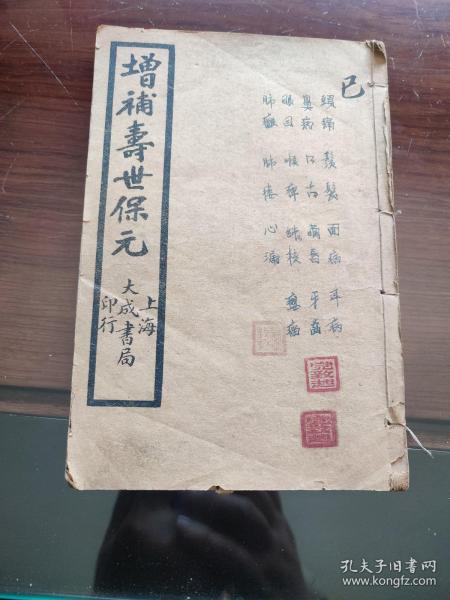 增補壽世保元
上海
大成書局
印行
巳
頭痛 鬚髮 面病 耳病
鼻病 口舌 牙齒
眼目 喉痺 結核
肺癰 肺痿 心漏
孔夫子旧书网
www.kongfz.com